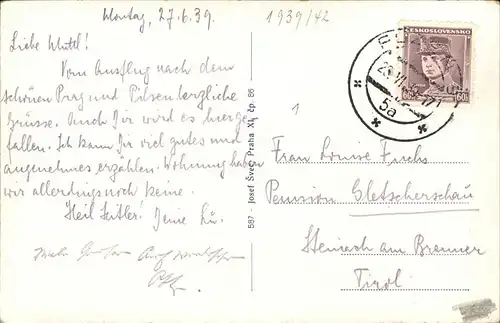 Montag, 27.6.39.
1939/42
Liebe Mutti!
Vom Ausflug nach dem
schönen Prag und Pilsen herzliche
Grüsse. Auch Dir wird es hier ge-
fallen. Ich kann Dir viel gutes und
angenehmes erzählen. Wohnung haben
wir allerdings noch keine.
Heil Hitler! Deine
ČESKOSLOVENSKO
60
5a
1
587 - Josef Švec, Praha XI, čp 86
Frau Louise Fuchs
Pension Gletscherschau
Steinach am Brenner
Tirol